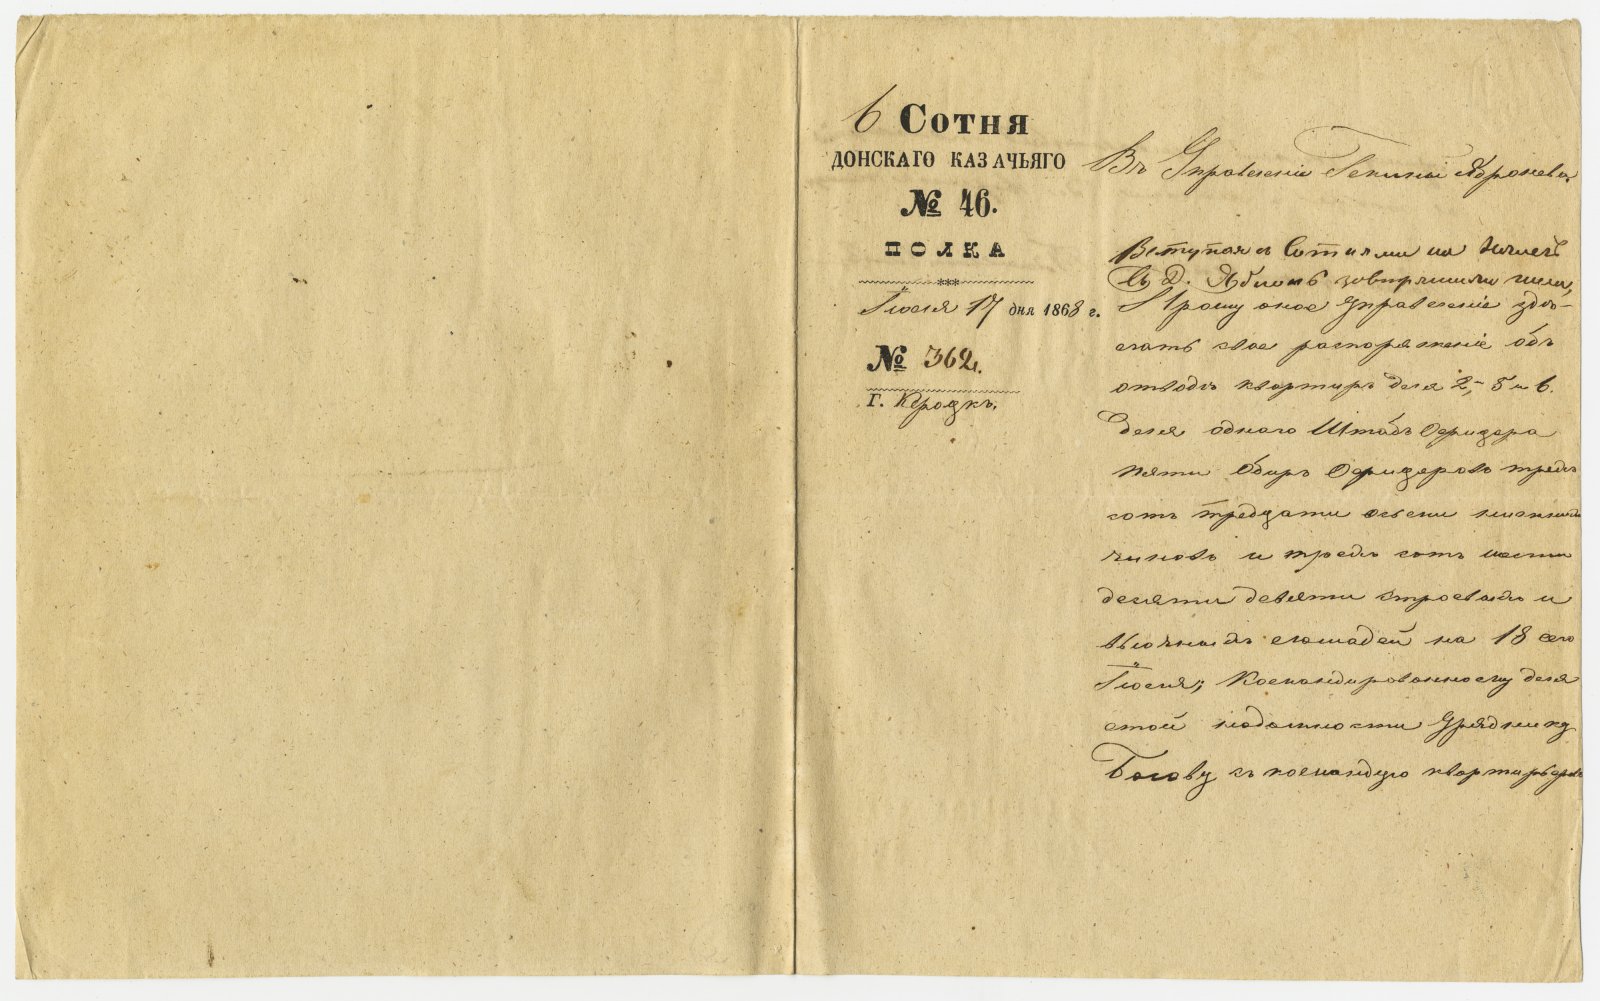 6 Сотня
ДОНСКАГО КАЗАЧЬЯГО
№ 46.
ПОЛКА
Іюля 17 дня 1868 г.
№ 362.
Г.
Въ Управленіе Гмины
Вступая съ Сотнями на
въ Д.
Прошу оное Управленіе сдѣ-
лать свое распоряженіе объ
отводѣ квартиръ для 2, 5 и 6.
для одного Штабъ Офицера
пяти Оберъ Офицеровъ трехъ
сотъ тредцати нижнихъ
чиновъ и трехъ сотъ шести
десяти девяти строевыхъ и
вьючныхъ лошадей на 18 сего
Іюля; Командированному для
этой надобности Уряднику
съ командую квартирьеровъ